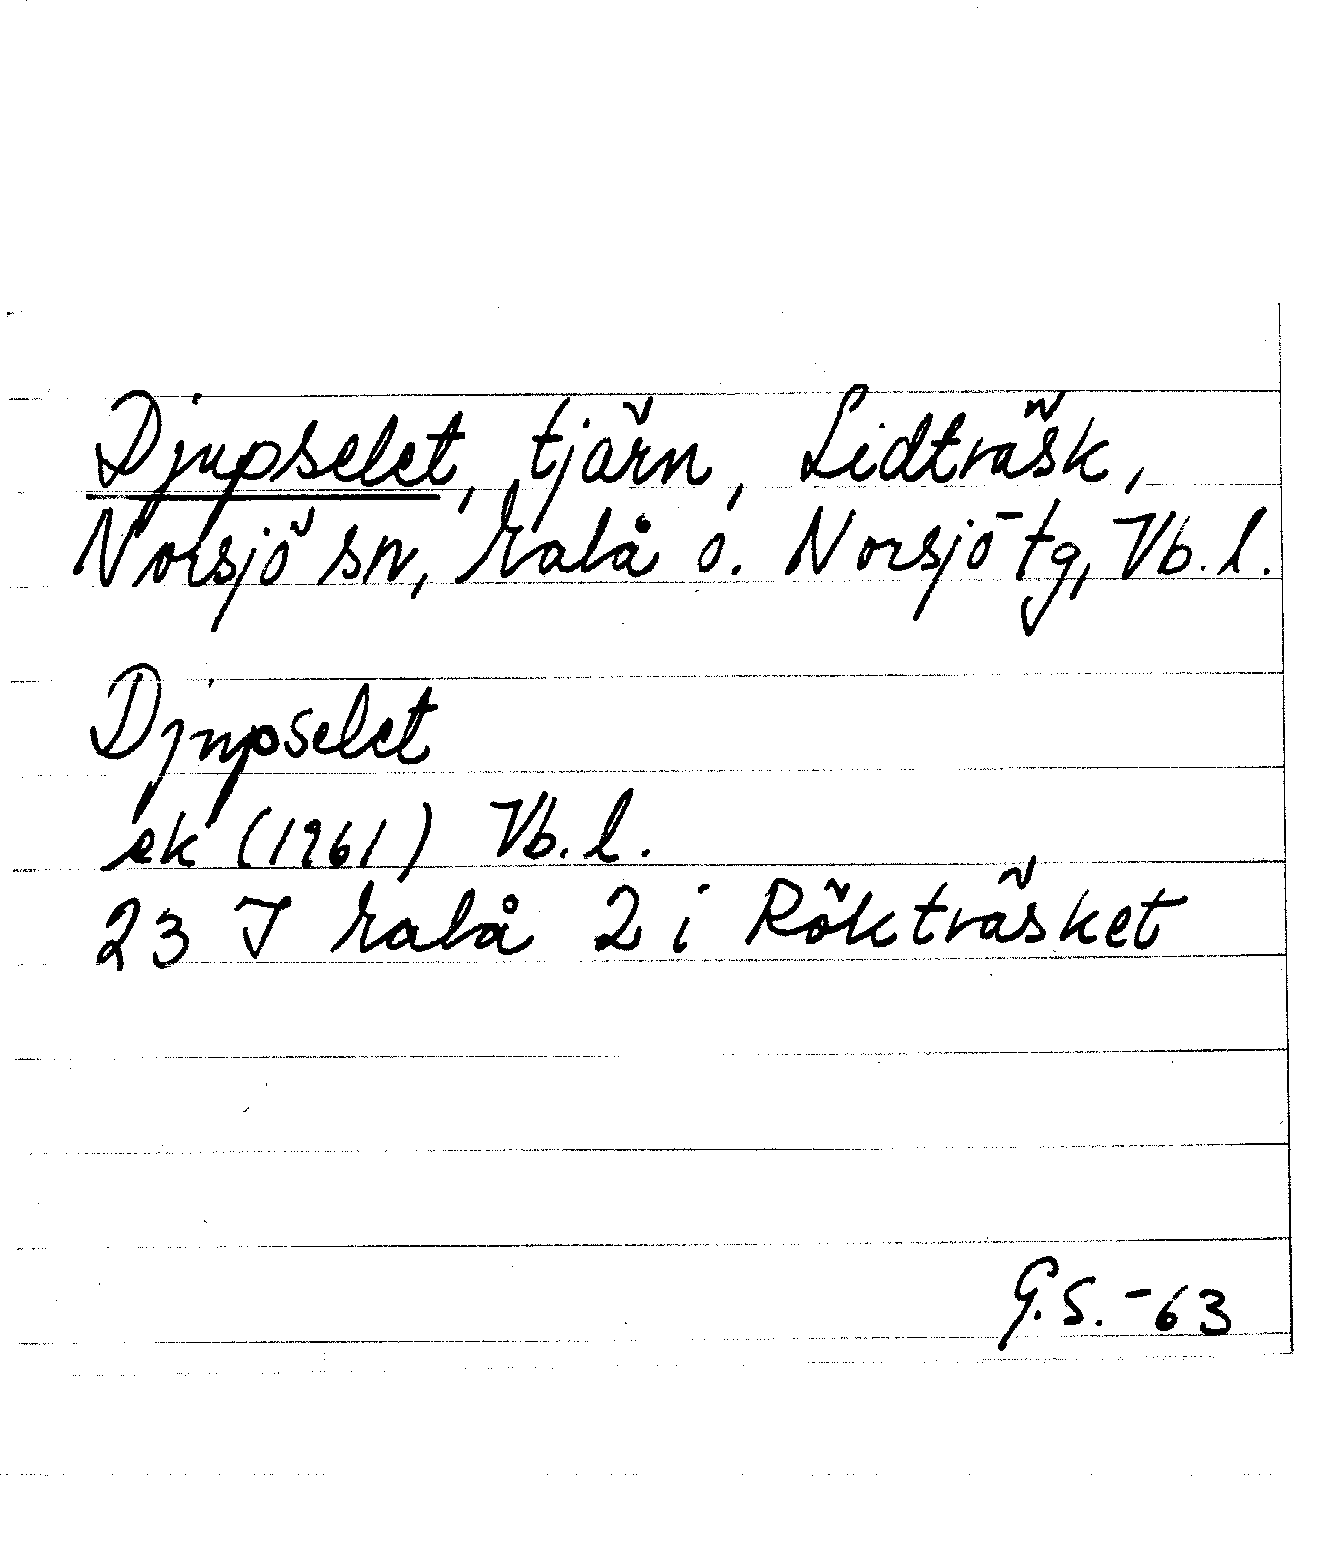 Djupselet, tjärn, Lidträsk,
Norsjö sn, Malå o. Norsjö tg, Vb. l.
Djupselet
ek (1961) Vb. l.
23 J Malå 2 i Rökträsket
G.S. -63